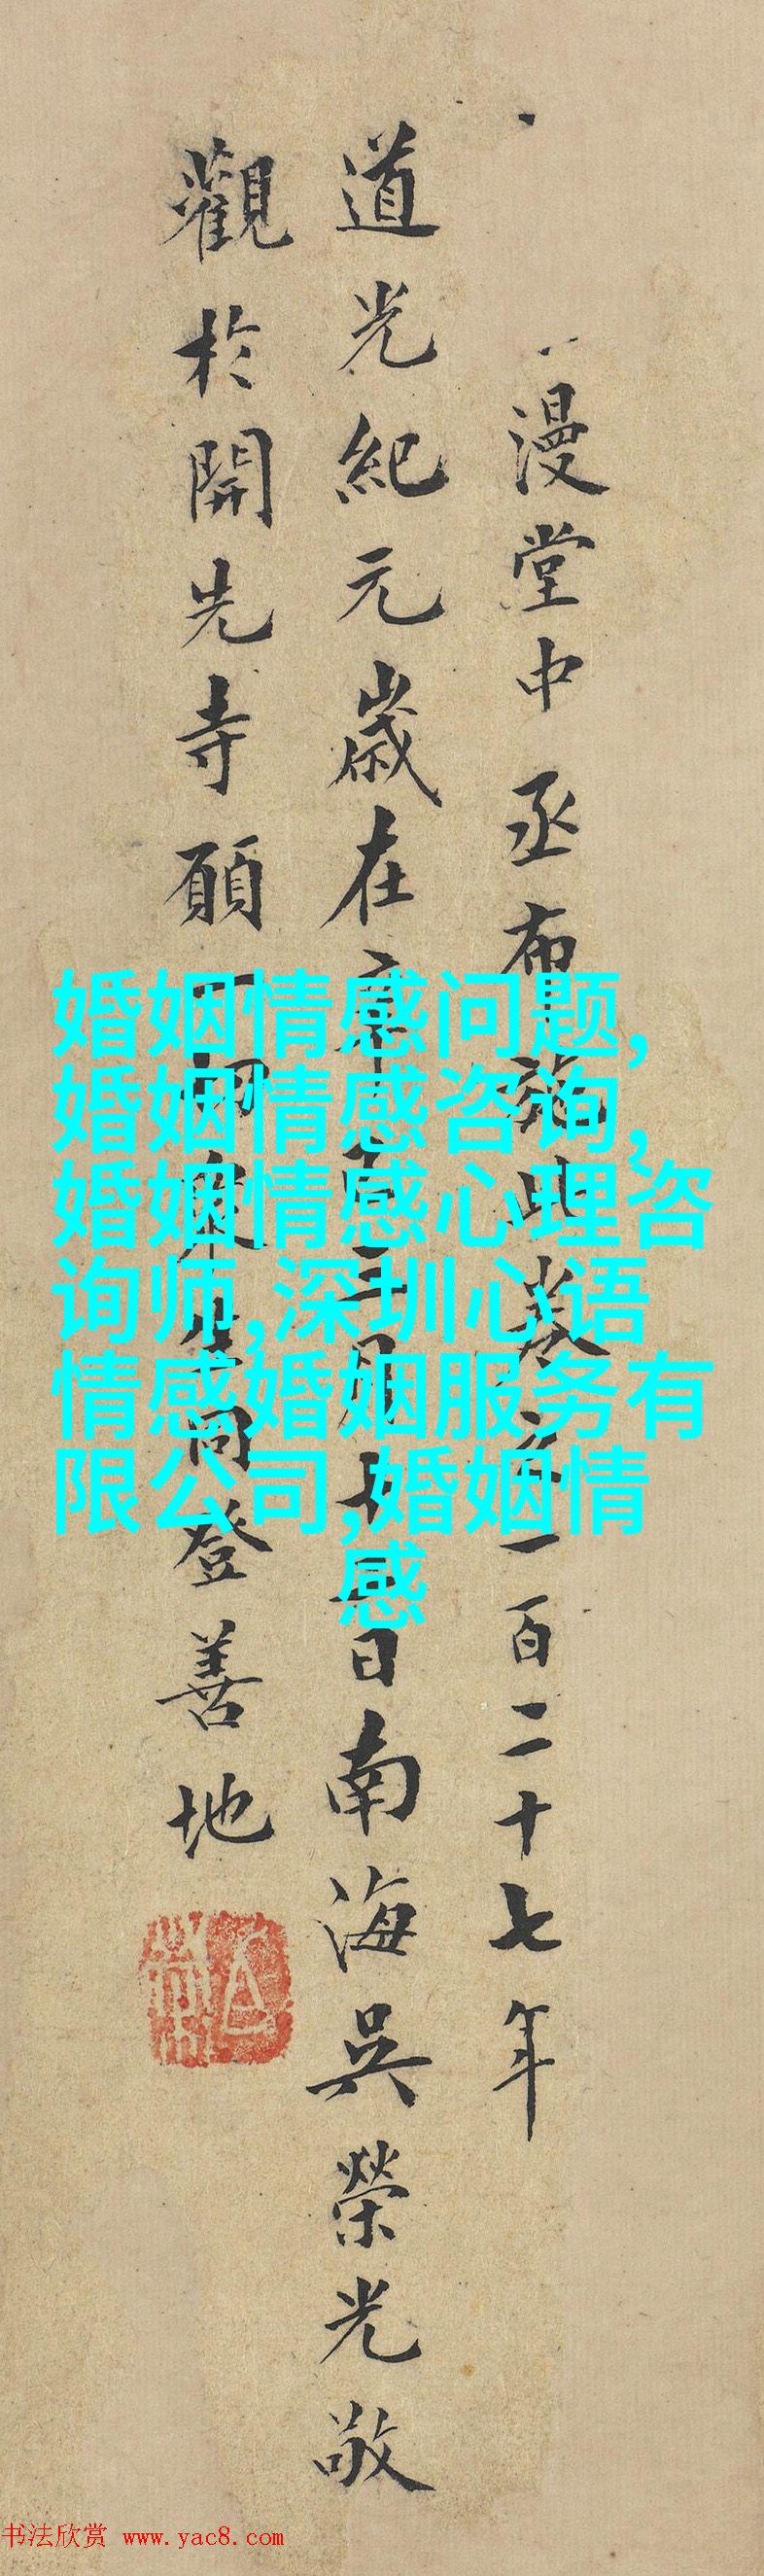 漫堂中丞布施此卷之一百二十七年
道光紀元歲在辛巳三月十日南海吳榮光敬
觀於開先寺願一切衆生同登善地
婚姻情感问题,
婚姻情感咨询,
婚姻情感心理咨
询师,深圳心语
情感婚姻服务有
限公司,婚姻情
感
书法欣赏 www.yac8.com